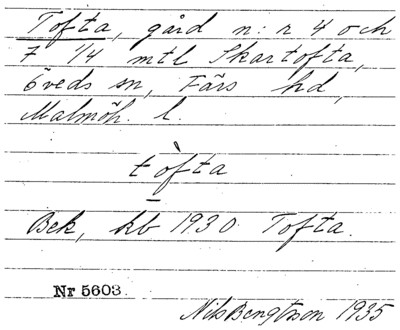 Tofta, gård n:r 4 och
7 1/4 mtl Skartofta,
Öveds sn, Färs hd,
Malmöh. l.
tòfta
Bek, kb 1930 Tofta.
Nr 5603
Nils Bengtsson 1935